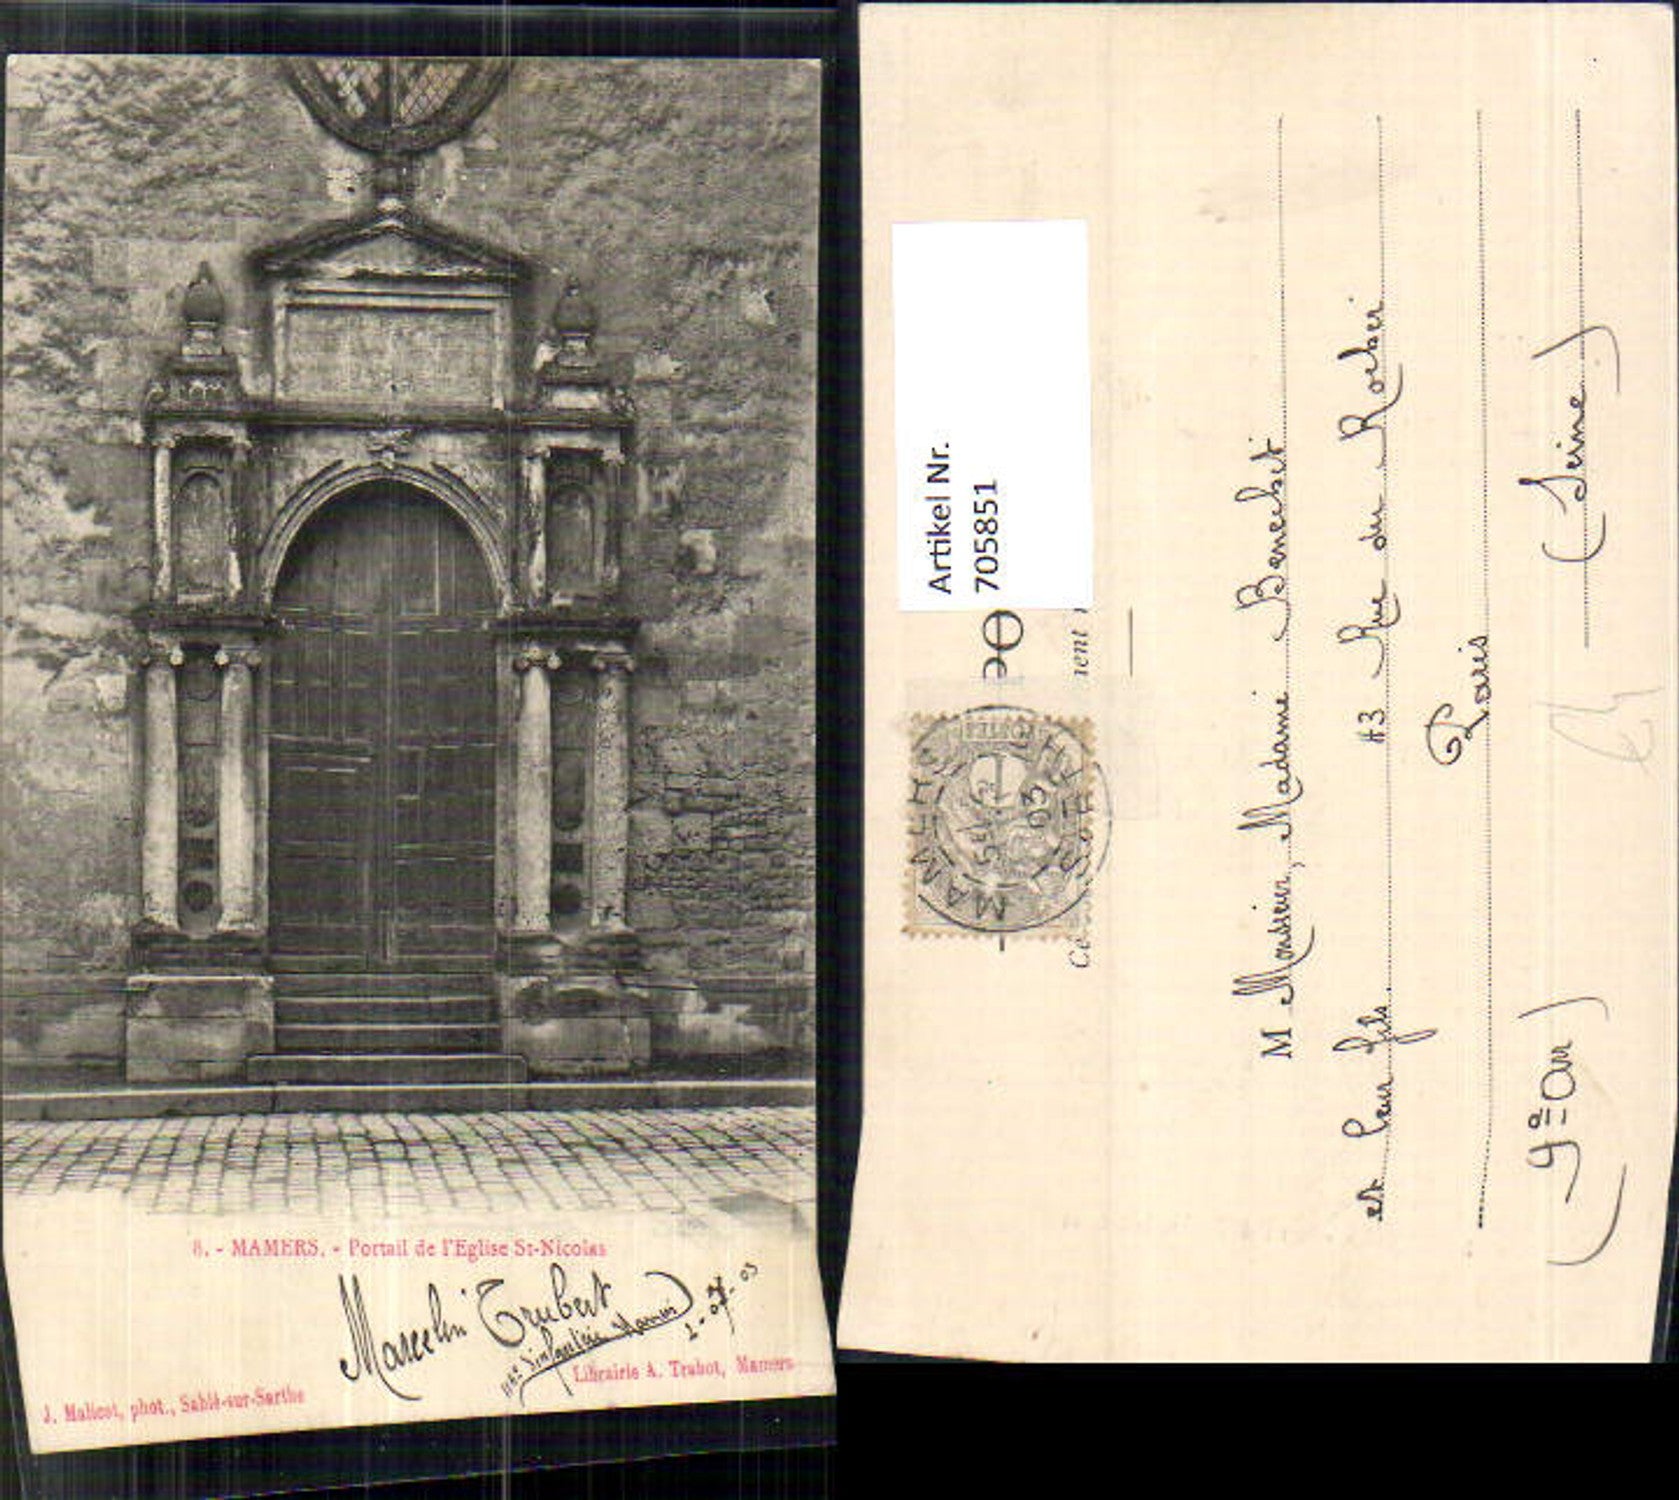 8. - MAMERS. - Portail de l'Eglise St-Nicolas
Marcelin Trubert
115e d'infanterie Mamers
2-07-03
J. Malicot, phot., Sablé-sur-Sarthe
Librairie A. Trabot, Mamers
Artikel Nr.
705851
MAMERS
SARTHE
03
M Monsieur, Madame Benechet
et leur fils. 43 Rue du Rocher
Paris
(9e arr) (Seine)